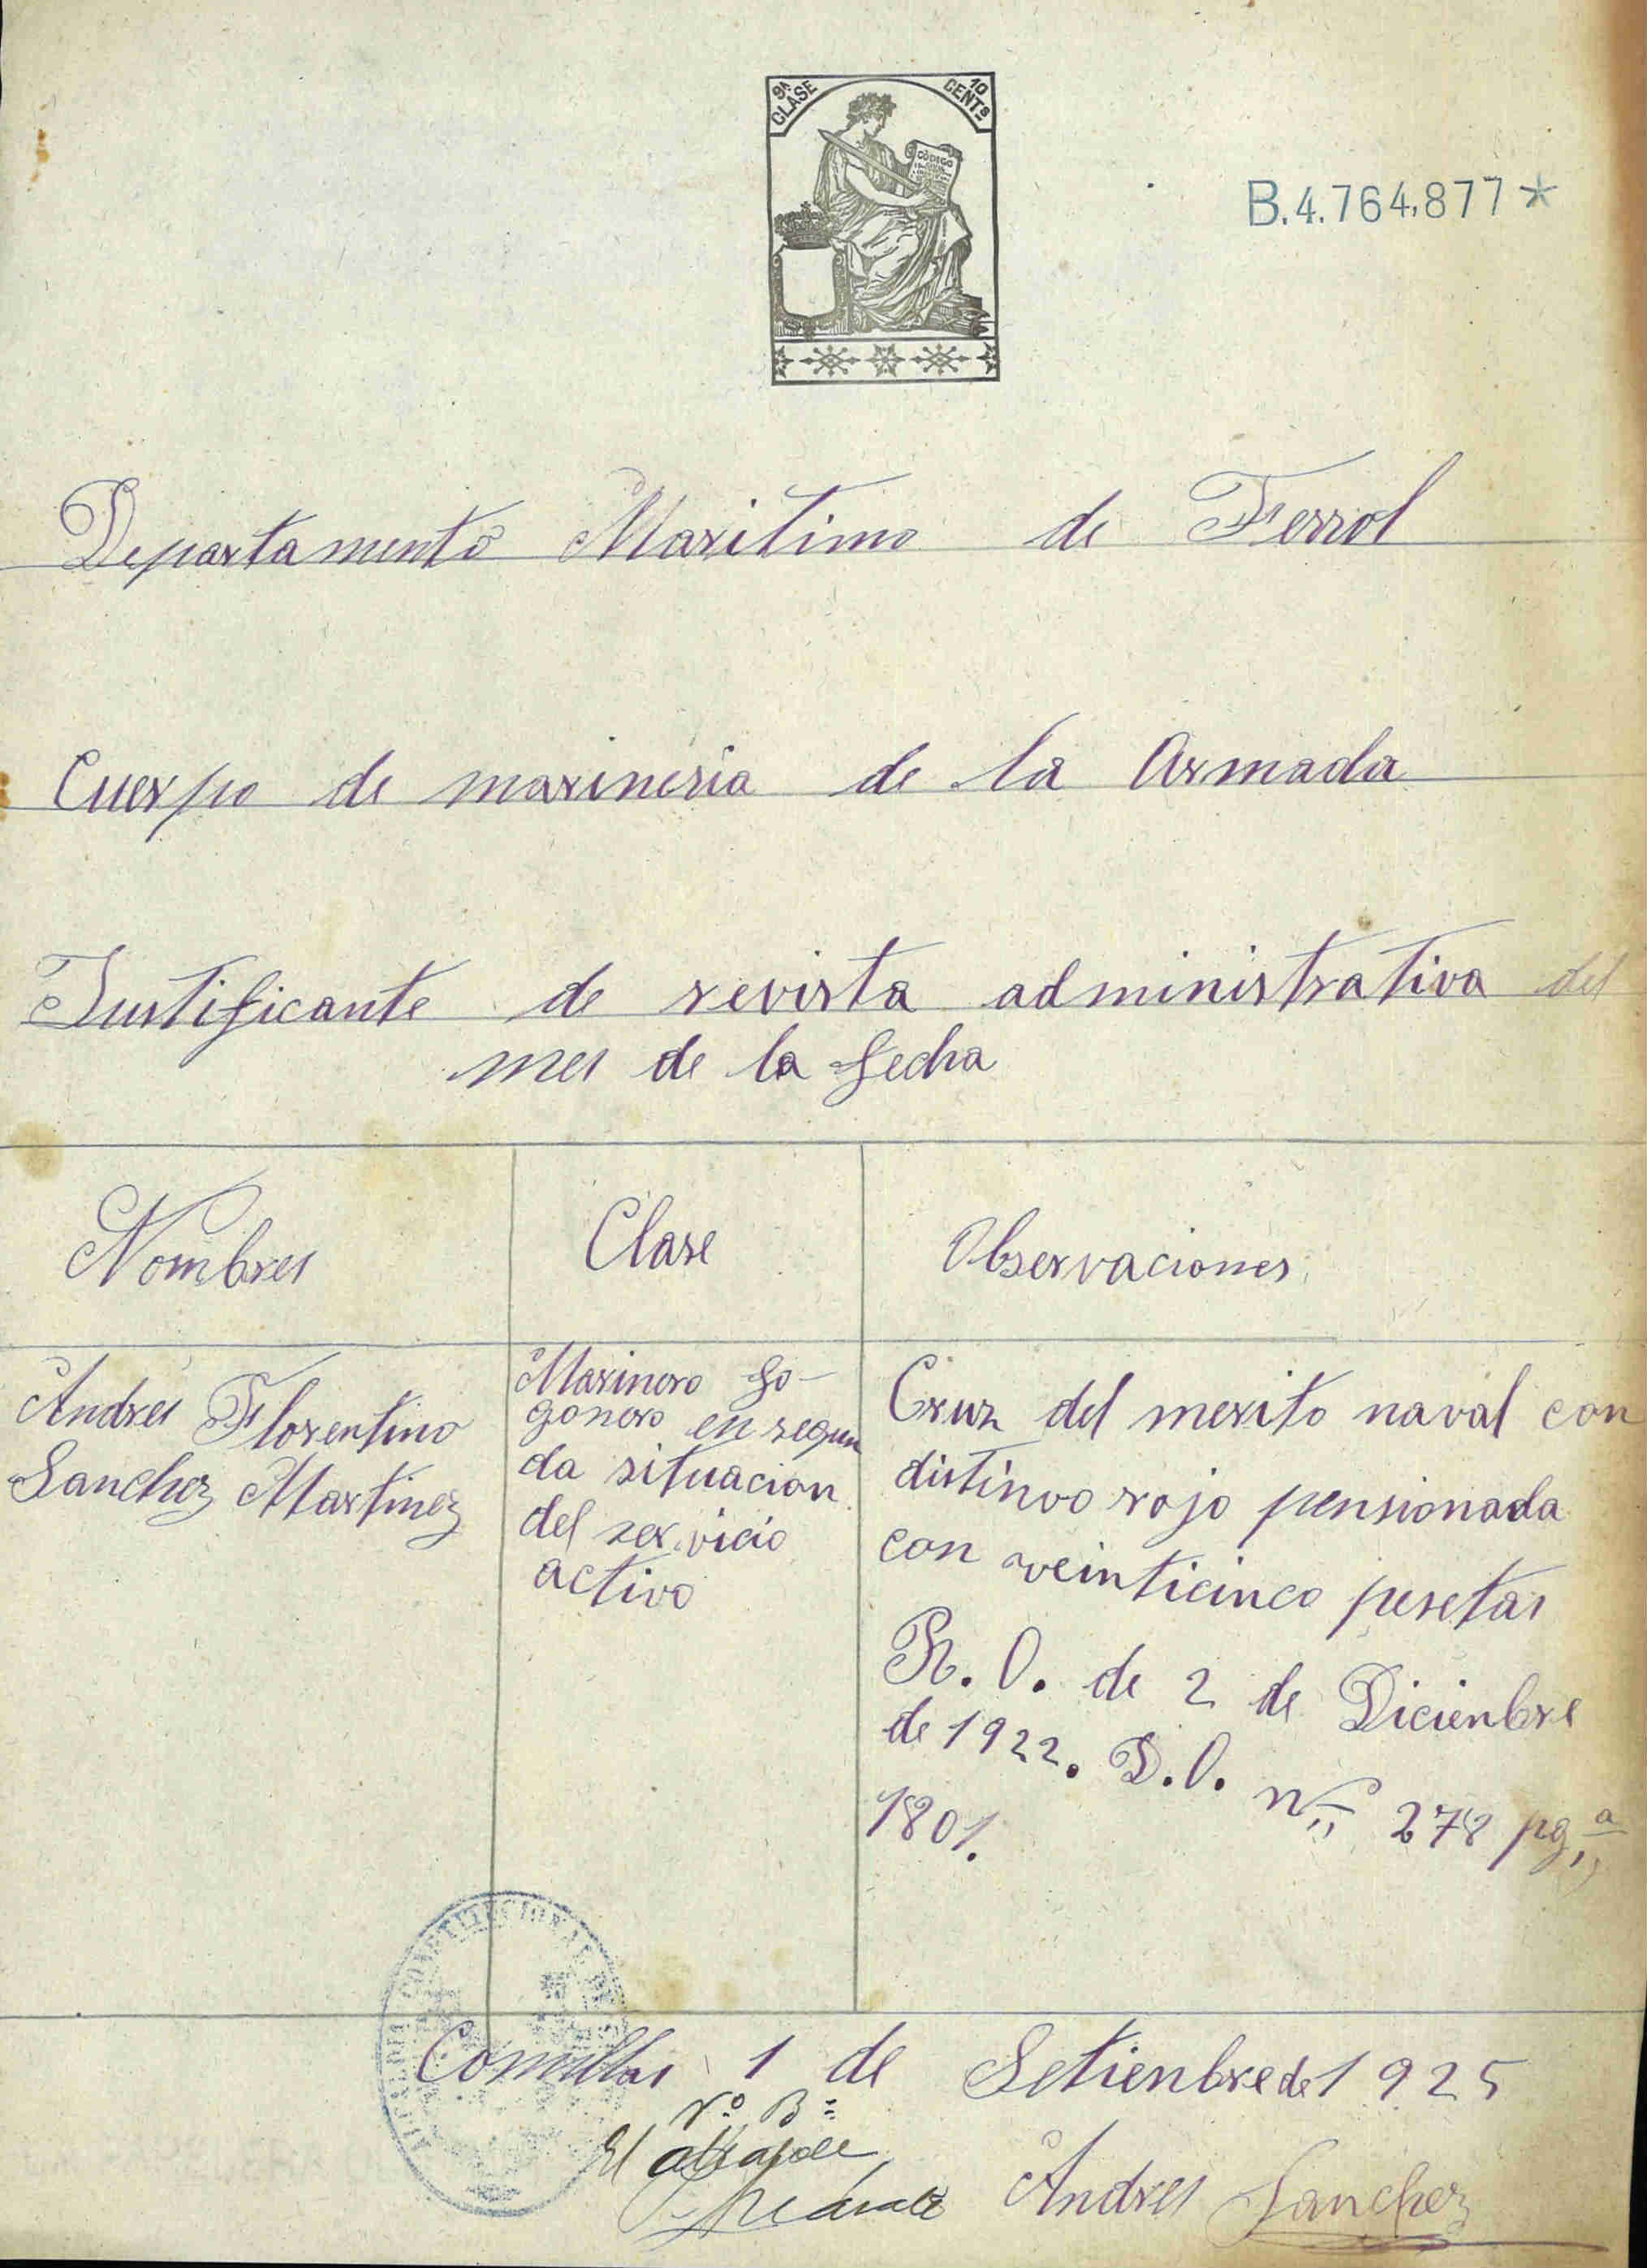 9ª CLASE
10 CENTs
CÓDIGO
B.4.764,877*
Departamento Maritimo de Ferrol
Cuerpo de marineria de la Armada
Justificante de revista administrativa del
mes de la fecha
Nombres
Clase
Observaciones
Andres Florentino
Sanchez Martinez
Marinero fo-
gonero en segun
da situacion
del servicio
activo
Cruz del merito naval con
distinvo rojo pensionada
con veinticinco pesetas
R. O. de 2 de Dicienbre
de 1922. D. O. nº 278 pgª
1801.
Comillas 1 de Setienbre de 1925
Vº Bº
El alcalde
Andres Sanchez